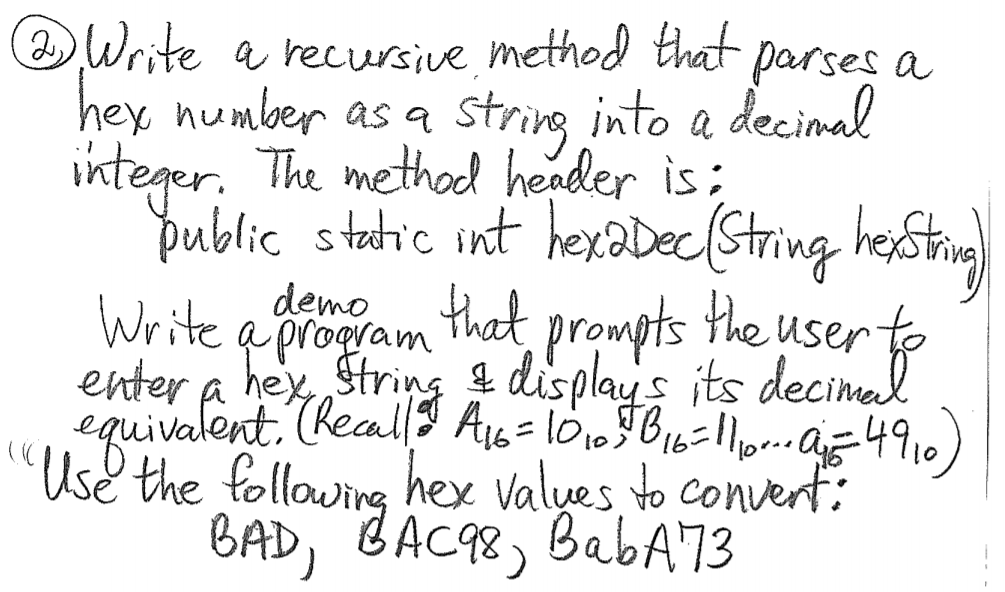 2. Write a recursive method that parses a
hex number as a string into a decimal
integer. The method header is:
public static int hex2Dec(String hexString)
Write a demo program that prompts the user to
enter a hex string & displays its decimal
equivalent. (Recall: A16 = 1010, B16 = 1110... a16 = 4910)
"Use the following hex values to convert:
BAD, BAC98, BabA73